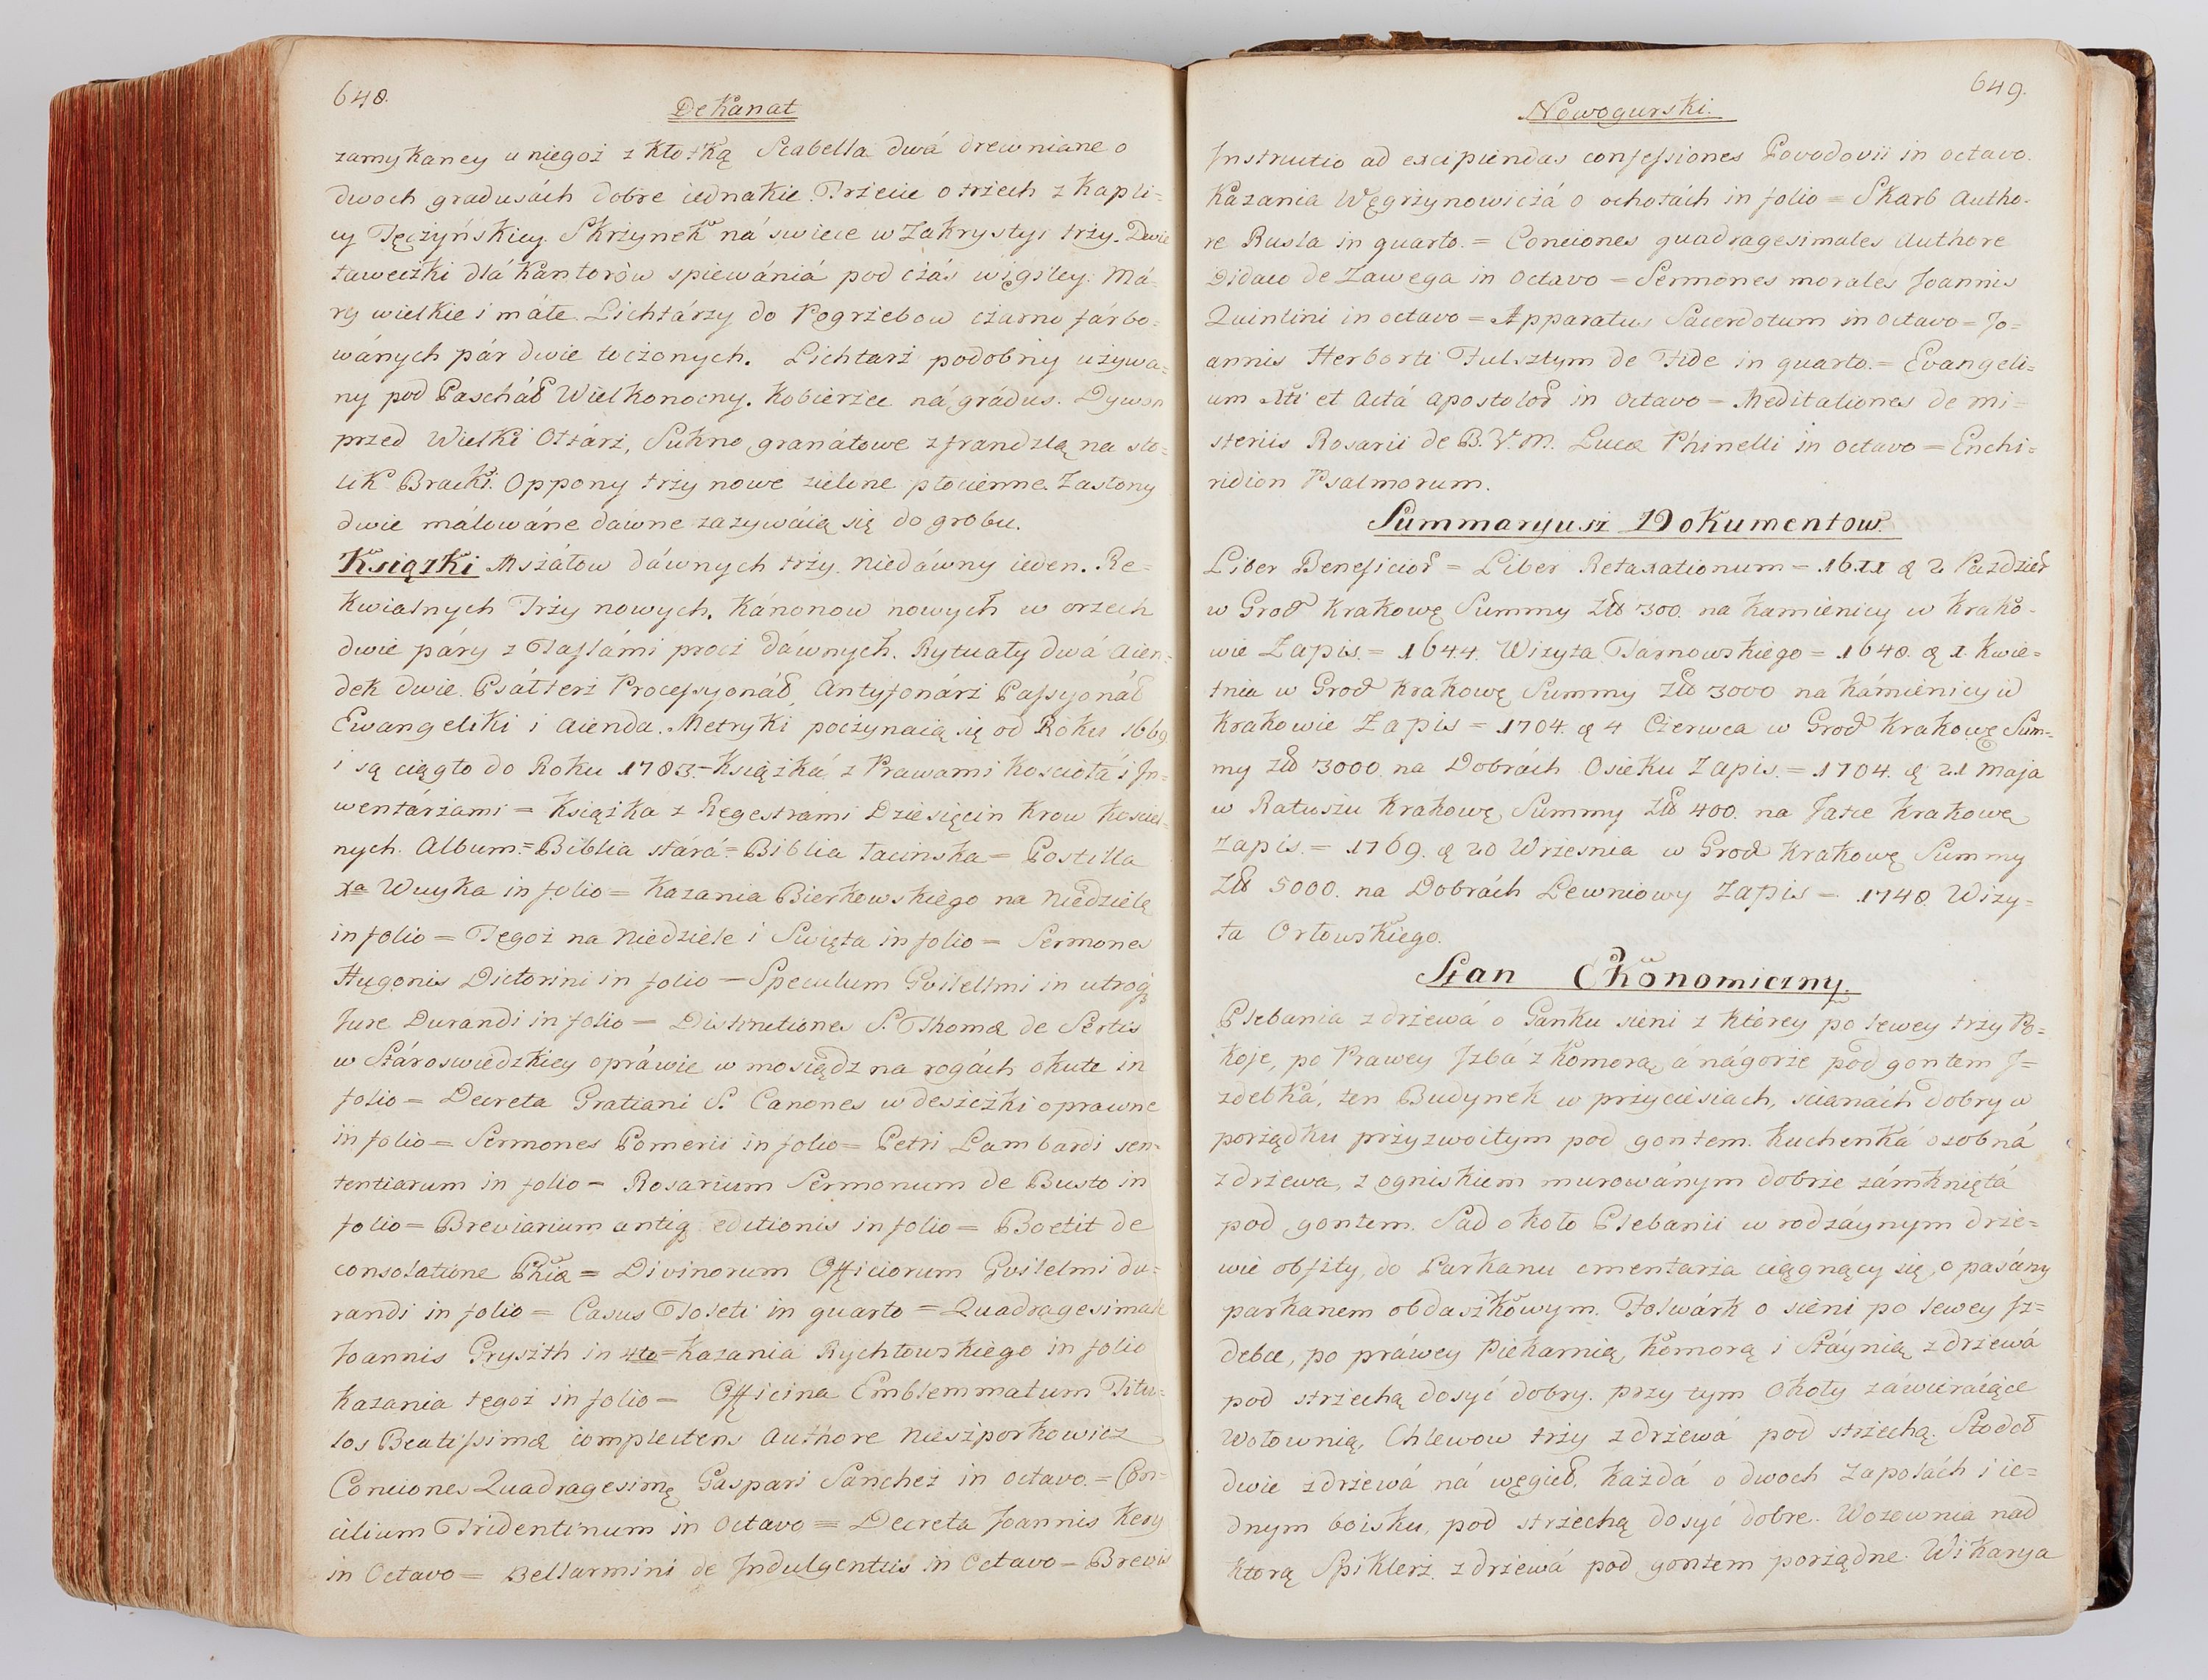 648.
Dekanat
zamykaney u niegoż z kłotką Scabella dwá drewniane o
dwoch gradusách dobre iednakie. Trżecie o trżech z Kapli=
cy Tęczyńskiey. Skrżynek ná swiece w Zakrystyi trży. Dwie
ławeczki dlá Kantorów spiewániá pod czás wigiley. Má=
ry wielkie i máłe. Lichtárzy do Pogrżebow czarno fárbo=
wánych pár dwie toczonych. Lichtarż podobny używa=
ny pod Pascháł Wielkonocny. Kobierżec ná grádus. Dywan
przed Wielki Ołtárż, Sukno granátowe z frandzlą na sto=
lik Bracki. Oppony trży nowe zielone płocienne. Zasłony
dwie málowáne dawne zazywáią się do grobu.
Książki Mszałow dáwnych trży niedáwny ieden. Re=
kwialnych Trży nowych. Kánonow nowych w orzech
dwie páry z Taflámi procż dáwnych. Rytuały dwá Aien=
dek dwie. Psałterż Processyonáł Antyfonárż Passyonáł
Ewangeliki i Aienda. Metryki poczynaią się od Roku 1669
i są ciągło do Roku 1783.=Książká z Prawami Koscioła i In=
wentárżami = Książka z Regestrami Dziesięcin Krow Koscieł=
nych. Album.=Biblia stárá=Biblia łacinska= Postilla
Xa Wuyka in folio = Kazania Bierkowskiego na Niedzielę
in folio = Tegoż na Niedziele i Swięta in folio = Sermones
Hugonis Victorini in folio = Speculum Guilelmi in utroq
Jure Durandi in folio = Distinctiones S. Thomæ de Sertis
w Stároswiedzkiey opráwie w mosiądz na rogách okute in
folio = Decreta Gratiani S. Canones w deszczki oprawne
in folio = Sermones Pomerii in folio = Petri Lambardi sen=
tentiarum in folio = Rosarium Sermonum de Busto in
folio = Breviarium antiq editionis in folio = Boetii de
consolatione Phiæ = Divinorum Officiorum Guilelmi du=
randi in folio = Casus Toleti in quarto = Quadragesimale
Joannis Gryszth in 4to=Kazania Rychłowskiego in folio
Kazania tegoż in folio = Officina Emblemmatum Titu=
los Beatissimæ complectens Authore Nieszporkowicz
Conciones Quadragesimę Gaspari Sanchez in octavo. = Con=
cilium Tridentinum in Octavo = Decreta Joannis Kery
in Octavo = Bellarmini de Indulgentiis in Octavo = Brevis
649.
Nowogurski.
Instructio ad excipiendas confessiones Povodovii in octavo.
Kazania Węgrżynowiczá o ochotách in folio = Skarb Autho-
re Rusla in quarto. = Conciones quadragesimales Authore
Didaco de Zawega in Octavo = Sermones morales Joannis
Quintini in octavo = Apparatus Sacerdotum in octavo = Jo=
annis Herborti Fulsztym de Fide in quarto. = Evangeli=
um Xti et Actá Apostoloŕ in Octavo = Meditationes de Mi=
steriis Rosarii de B.V.M. Lucæ Phinelli in octavo = Enchi=
ridion Psalmorum.
Summaryusz Dokumentow.
Liber Beneficioŕ = Liber Retaxationum = 16.11 Ą 2 Pazdzieŕ
w Grod Krakowę Summy Złł 300. na Kamienicy w Krako=
wie Zapis. = 1644. Wizyta Tarnowskiego = 1648. Ą 1. Kwie=
tnia w Grod Krakowę Summy Złł 3000 na Kámienicy w
Krakowie Zapis = 1704. Ą 4 Czerwca w Grod Krakowę Sum=
my Złł 3000. na Dobrách Osieku Zapis. = 1704. Ą 21 Maja
w Ratuszu Krakowę Summy Złł 400. na Jatce Krakowę
Zapis. = 1769. Ą 20 Wrzesnia w Grod Krakowę Summy
Złł 5000. na Dobrách Lewniowy Zapis = 1748. Wizy=
ta Orłowskiego.
Stan Ekonomiczny.
Plebania z drżewá o Ganku sieni z ktorey po lewey trży Po=
koje, po Prawey Izbá z Komorą, á nágorże pod gontem I=
zdebká, ten Budynek w prżyciesiach, scianách dobry w
porżądku prżyzwoitym pod gontem. Kuchenká osobná
z drżewa, z ogniskiem murowánym dobrże zámkniętá
pod gontem. Sad około Plebanii w rodzáynym drże=
wie obfity, do Parkanu cmentarża ciągnący się, opasány
parkanem obdaszkowym. Folwárk o sieni po lewey Iz=
debce, po práwey Piekarnią, Komorą i Stáynią z drżewá
pod strżechą dosyć dobry. przy tym Okoły záwieraiące
Wołownią, Chlewow trży z drżewá pod strżechą. Stodoł
dwie z drżewá ná węgieł, każdá o dwoch zapolách i ie=
dnym boisku, pod strżechą dosyć dobre. Wozownia nad
ktorą Spiklerż z drżewá pod gontem porżądne. Wikarya